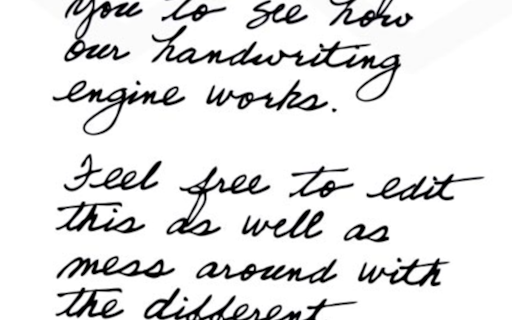 you to see how
our handwriting
engine works.
Feel free to edit
this as well as
mess around with
the different